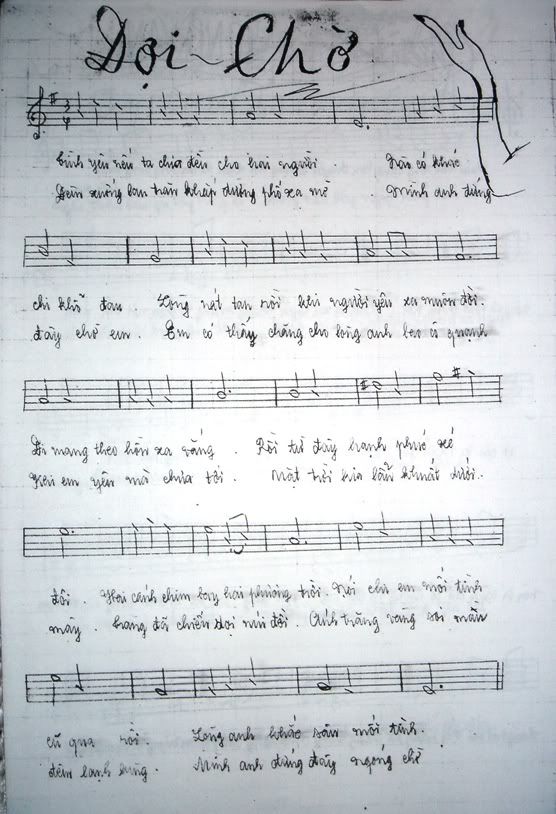 Đợi ~ Chờ
Tình yêu nếu ta chia đều cho hai người . Nào có khác
Đêm xuống lan tràn khắp đường phố xa mờ . Mình anh đứng
chi khổ đau . Lòng nát tan rồi khi người yêu xa muôn đời.
đây chờ em . Em có thấy chăng cho lòng anh bao cô quạnh
Đi mang theo hồn xa vắng . Rồi từ đây hạnh phúc xẻ
Kêu em yêu mà chưa tới . Mặt trời kia lẫn khuất dưới.
đôi . Hai cánh chim bay hai phương trời . Nói chi em mối tình
mây . Trăng đã chiếu rọi núi đồi . Ánh trăng vàng soi màn
cũ qua rồi . Lòng anh khắc sâu mối tình.
đêm lạnh lùng . Mình anh đứng đây ngóng chờ